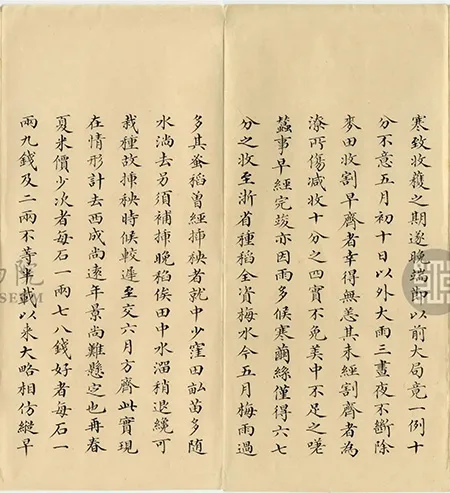 寒致收穫之期遂晚端節以前大局竟一例十
分不意五月初十日以外大雨三晝夜不斷除
麥田收割早齊者幸得無恙其未經割齊者為
潦所傷減收十分之四實不免美中不足之嗟
蠶事早經完竣亦因雨多候寒繭絲僅得六七
分之收至浙省種稻全資梅水今五月梅雨過
多其蚤稻曾經插秧者就中少窪田畝苗多隨
水淌去另須補插晚稻俟田中水溜稍退纔可
栽種故插秧時候較遲至交六月方齊此實現
在情形計去西成尚遠年景尚難懸定也再春
夏米價少次者每石一兩七八錢好者每石一
兩九錢及二兩不等半載以來大略相仿縱早
院
SEUM